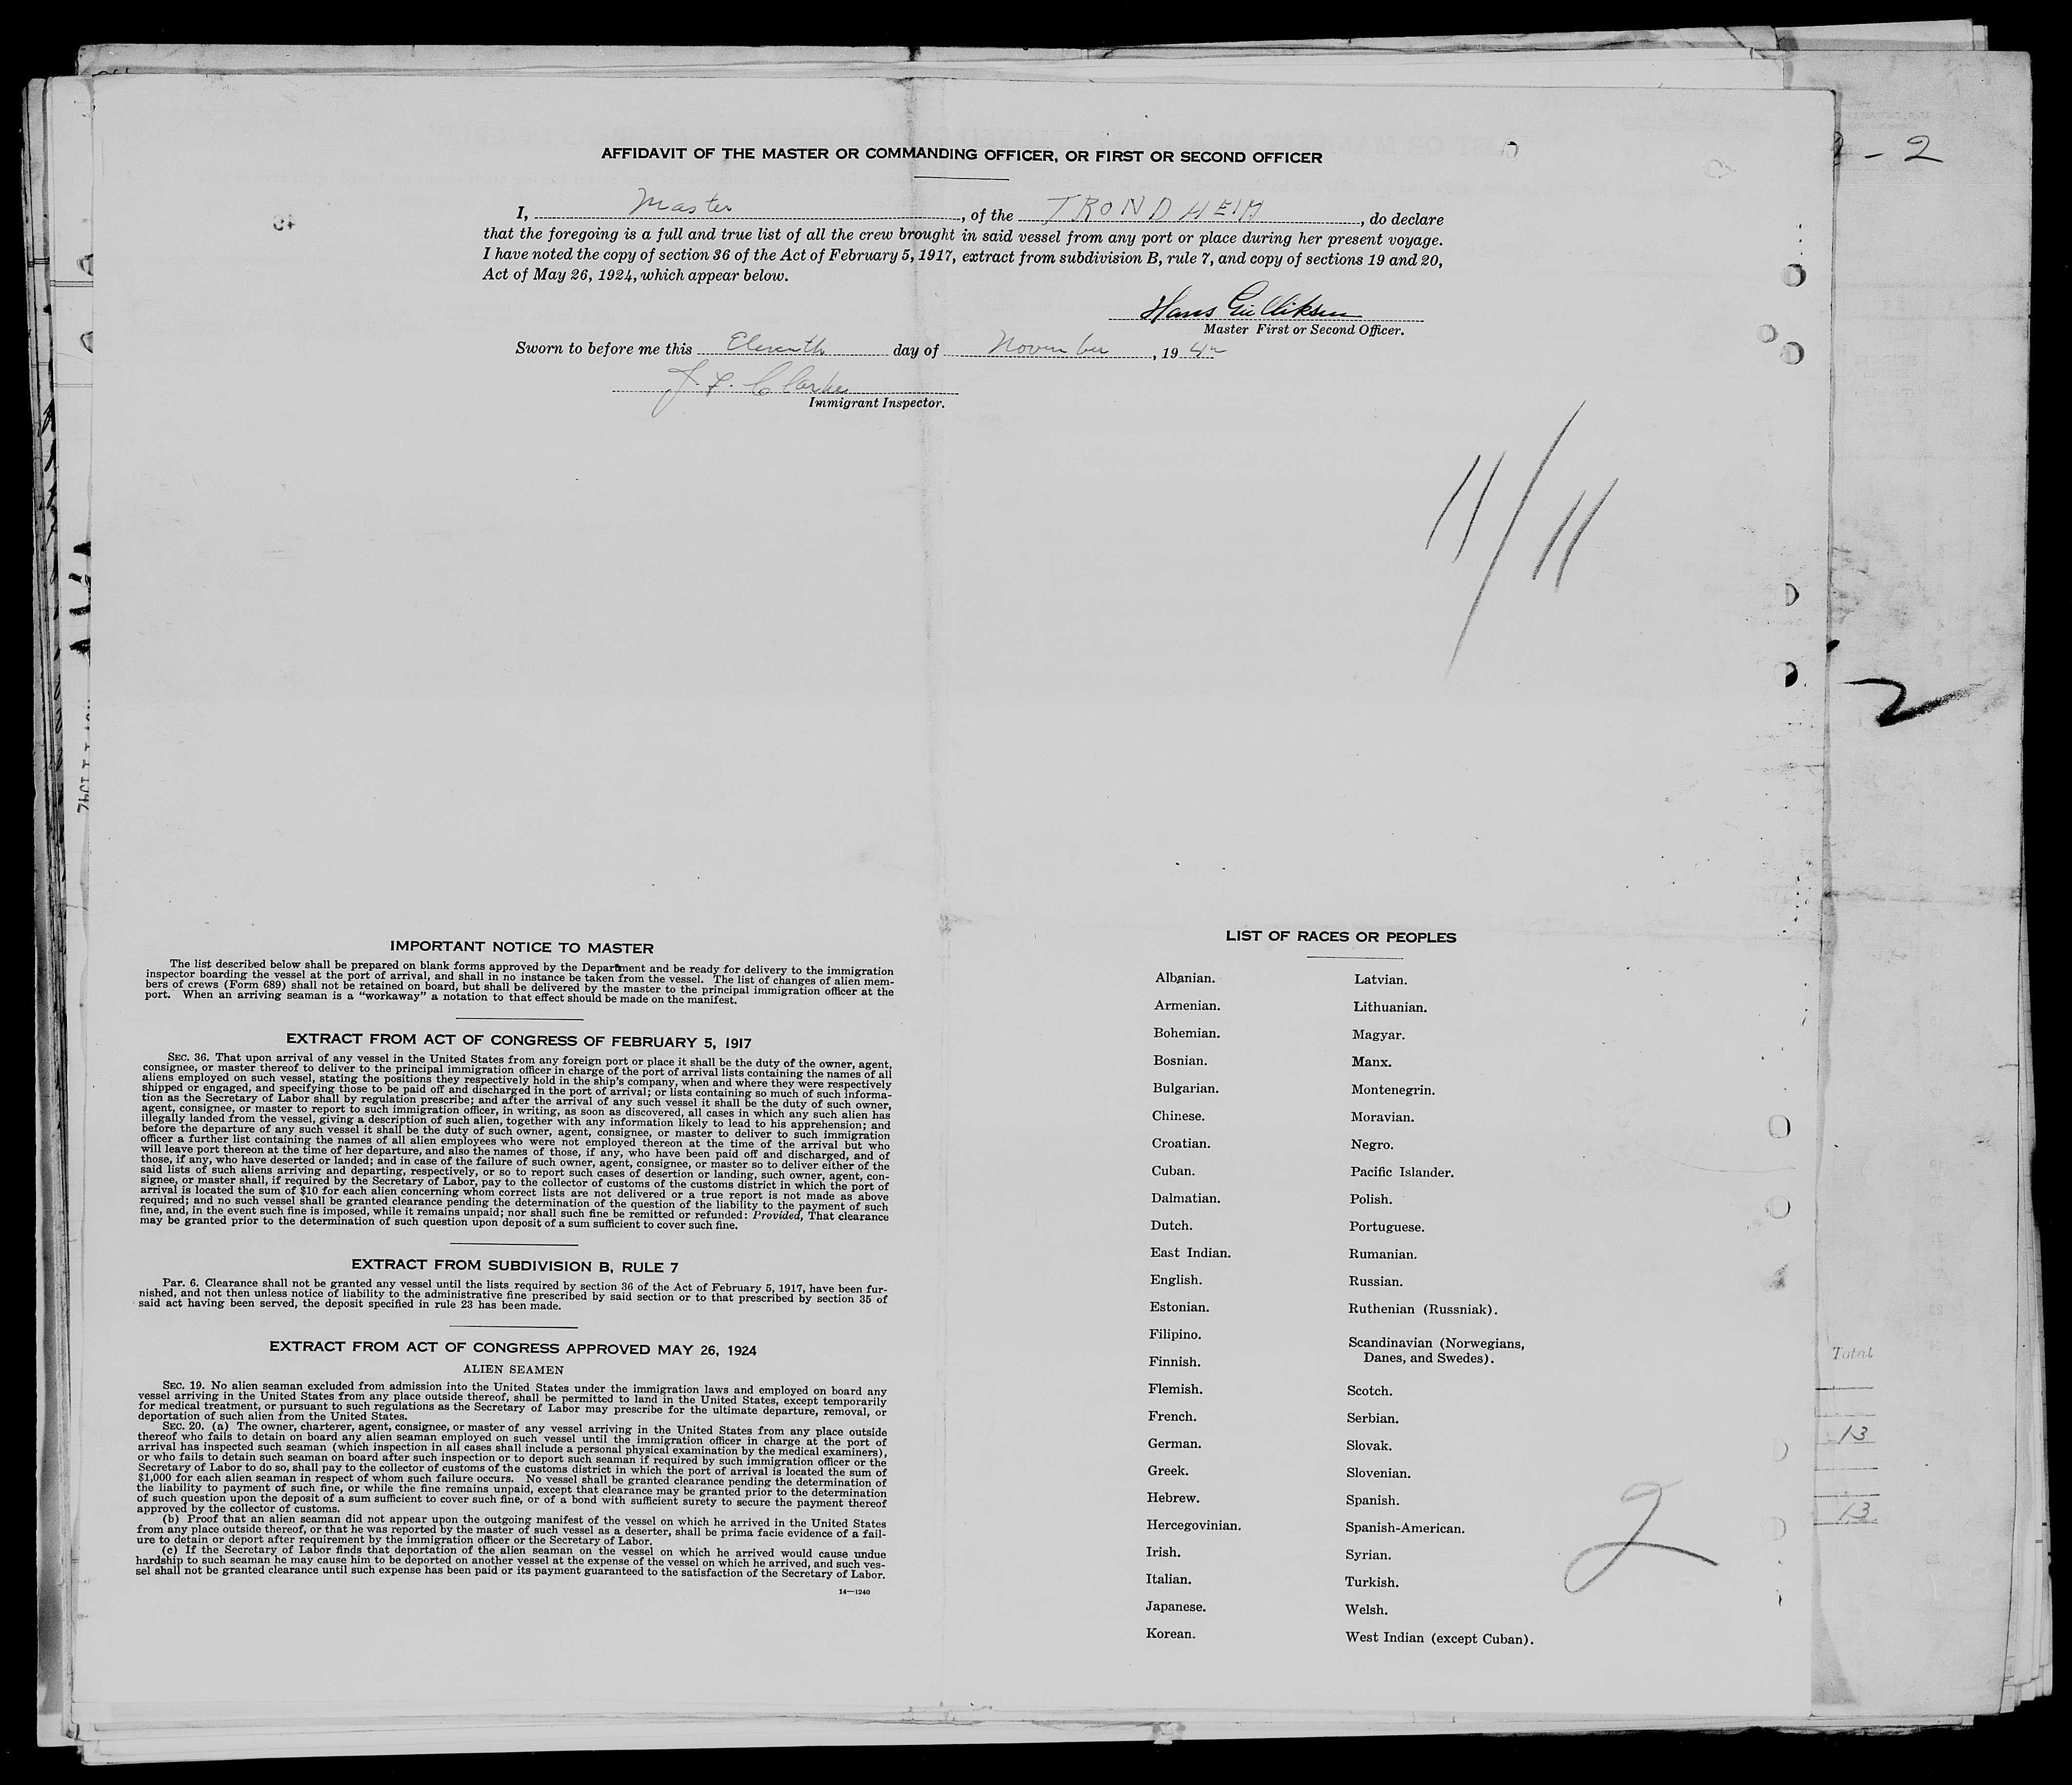 AFFIDAVIT OF THE MASTER OR COMMANDING OFFICER, OR FIRST OR SECOND OFFICER
I, Master, of the TRONDHEIM, do declare
that the foregoing is a full and true list of all the crew brought in said vessel from any port or place during her present voyage.
I have noted the copy of section 36 of the Act of February 5, 1917, extract from subdivision B, rule 7, and copy of sections 19 and 20,
Act of May 26, 1924, which appear below.
Hans Gulliksen
Master First or Second Officer.
Sworn to before me this Eleventh day of November, 19 42
J. F. Clarke
Immigrant Inspector.
11/11
IMPORTANT NOTICE TO MASTER
The list described below shall be prepared on blank forms approved by the Department and be ready for delivery to the immigration
inspector boarding the vessel at the port of arrival, and shall in no instance be taken from the vessel. The list of changes of alien mem-
bers of crews (Form 689) shall not be retained on board, but shall be delivered by the master to the principal immigration officer at the
port. When an arriving seaman is a "workaway" a notation to that effect should be made on the manifest.
EXTRACT FROM ACT OF CONGRESS OF FEBRUARY 5, 1917
SEC. 36. That upon arrival of any vessel in the United States from any foreign port or place it shall be the duty of the owner, agent,
consignee, or master thereof to deliver to the principal immigration officer in charge of the port of arrival lists containing the names of all
aliens employed on such vessel, stating the positions they respectively hold in the ship's company, when and where they were respectively
shipped or engaged, and specifying those to be paid off and discharged in the port of arrival; or lists containing so much of such informa-
tion as the Secretary of Labor shall by regulation prescribe; and after the arrival of any such vessel it shall be the duty of such owner,
agent, consignee, or master to report to such immigration officer, in writing, as soon as discovered, all cases in which any such alien has
illegally landed from the vessel, giving a description of such alien, together with any information likely to lead to his apprehension; and
before the departure of any such vessel it shall be the duty of such owner, agent, consignee, or master to deliver to such immigration
officer a further list containing the names of all alien employees who were not employed thereon at the time of the arrival but who
will leave port thereon at the time of her departure, and also the names of those, if any, who have been paid off and discharged, and of
those, if any, who have deserted or landed; and in case of the failure of such owner, agent, consignee, or master so to deliver either of the
said lists of such aliens arriving and departing, respectively, or so to report such cases of desertion or landing, such owner, agent, con-
signee, or master shall, if required by the Secretary of Labor, pay to the collector of customs of the customs district in which the port of
arrival is located the sum of $10 for each alien concerning whom correct lists are not delivered or a true report is not made as above
required; and no such vessel shall be granted clearance pending the determination of the question of the liability to the payment of such
fine, and, in the event such fine is imposed, while it remains unpaid; nor shall such fine be remitted or refunded: Provided, That clearance
may be granted prior to the determination of such question upon deposit of a sum sufficient to cover such fine.
EXTRACT FROM SUBDIVISION B, RULE 7
Par. 6. Clearance shall not be granted any vessel until the lists required by section 36 of the Act of February 5, 1917, have been fur-
nished, and not then unless notice of liability to the administrative fine prescribed by said section or to that prescribed by section 35 of
said act having been served, the deposit specified in rule 23 has been made.
EXTRACT FROM ACT OF CONGRESS APPROVED MAY 26, 1924
ALIEN SEAMEN
SEC. 19. No alien seaman excluded from admission into the United States under the immigration laws and employed on board any
vessel arriving in the United States from any place outside thereof, shall be permitted to land in the United States, except temporarily
for medical treatment, or pursuant to such regulations as the Secretary of Labor may prescribe for the ultimate departure, removal, or
deportation of such alien from the United States.
SEC. 20. (a) The owner, charterer, agent, consignee, or master of any vessel arriving in the United States from any place outside
thereof who fails to detain on board any alien seaman employed on such vessel until the immigration officer in charge at the port of
arrival has inspected such seaman (which inspection in all cases shall include a personal physical examination by the medical examiners),
or who fails to detain such seaman on board after such inspection or to deport such seaman if required by such immigration officer or the
Secretary of Labor to do so, shall pay to the collector of customs of the customs district in which the port of arrival is located the sum of
$1,000 for each alien seaman in respect of whom such failure occurs. No vessel shall be granted clearance pending the determination of
the liability to payment of such fine, or while the fine remains unpaid, except that clearance may be granted prior to the determination
of such question upon the deposit of a sum sufficient to cover such fine, or of a bond with sufficient surety to secure the payment thereof
approved by the collector of customs.
(b) Proof that an alien seaman did not appear upon the outgoing manifest of the vessel on which he arrived in the United States
from any place outside thereof, or that he was reported by the master of such vessel as a deserter, shall be prima facie evidence of a fail-
ure to detain or deport after requirement by the immigration officer or the Secretary of Labor.
(c) If the Secretary of Labor finds that deportation of the alien seaman on the vessel on which he arrived would cause undue
hardship to such seaman he may cause him to be deported on another vessel at the expense of the vessel on which he arrived, and such ves-
sel shall not be granted clearance until such expense has been paid or its payment guaranteed to the satisfaction of the Secretary of Labor.
14—1240
LIST OF RACES OR PEOPLES
Albanian.
Armenian.
Bohemian.
Bosnian.
Bulgarian.
Chinese.
Croatian.
Cuban.
Dalmatian.
Dutch.
East Indian.
English.
Estonian.
Filipino.
Finnish.
Flemish.
French.
German.
Greek.
Hebrew.
Hercegovinian.
Irish.
Italian.
Japanese.
Korean.
Latvian.
Lithuanian.
Magyar.
Manx.
Montenegrin.
Moravian.
Negro.
Pacific Islander.
Polish.
Portuguese.
Rumanian.
Russian.
Ruthenian (Russniak).
Scandinavian (Norwegians,
Danes, and Swedes).
Scotch.
Serbian.
Slovak.
Slovenian.
Spanish.
Spanish-American.
Syrian.
Turkish.
Welsh.
West Indian (except Cuban).
2
- 2
2
Total
13
13